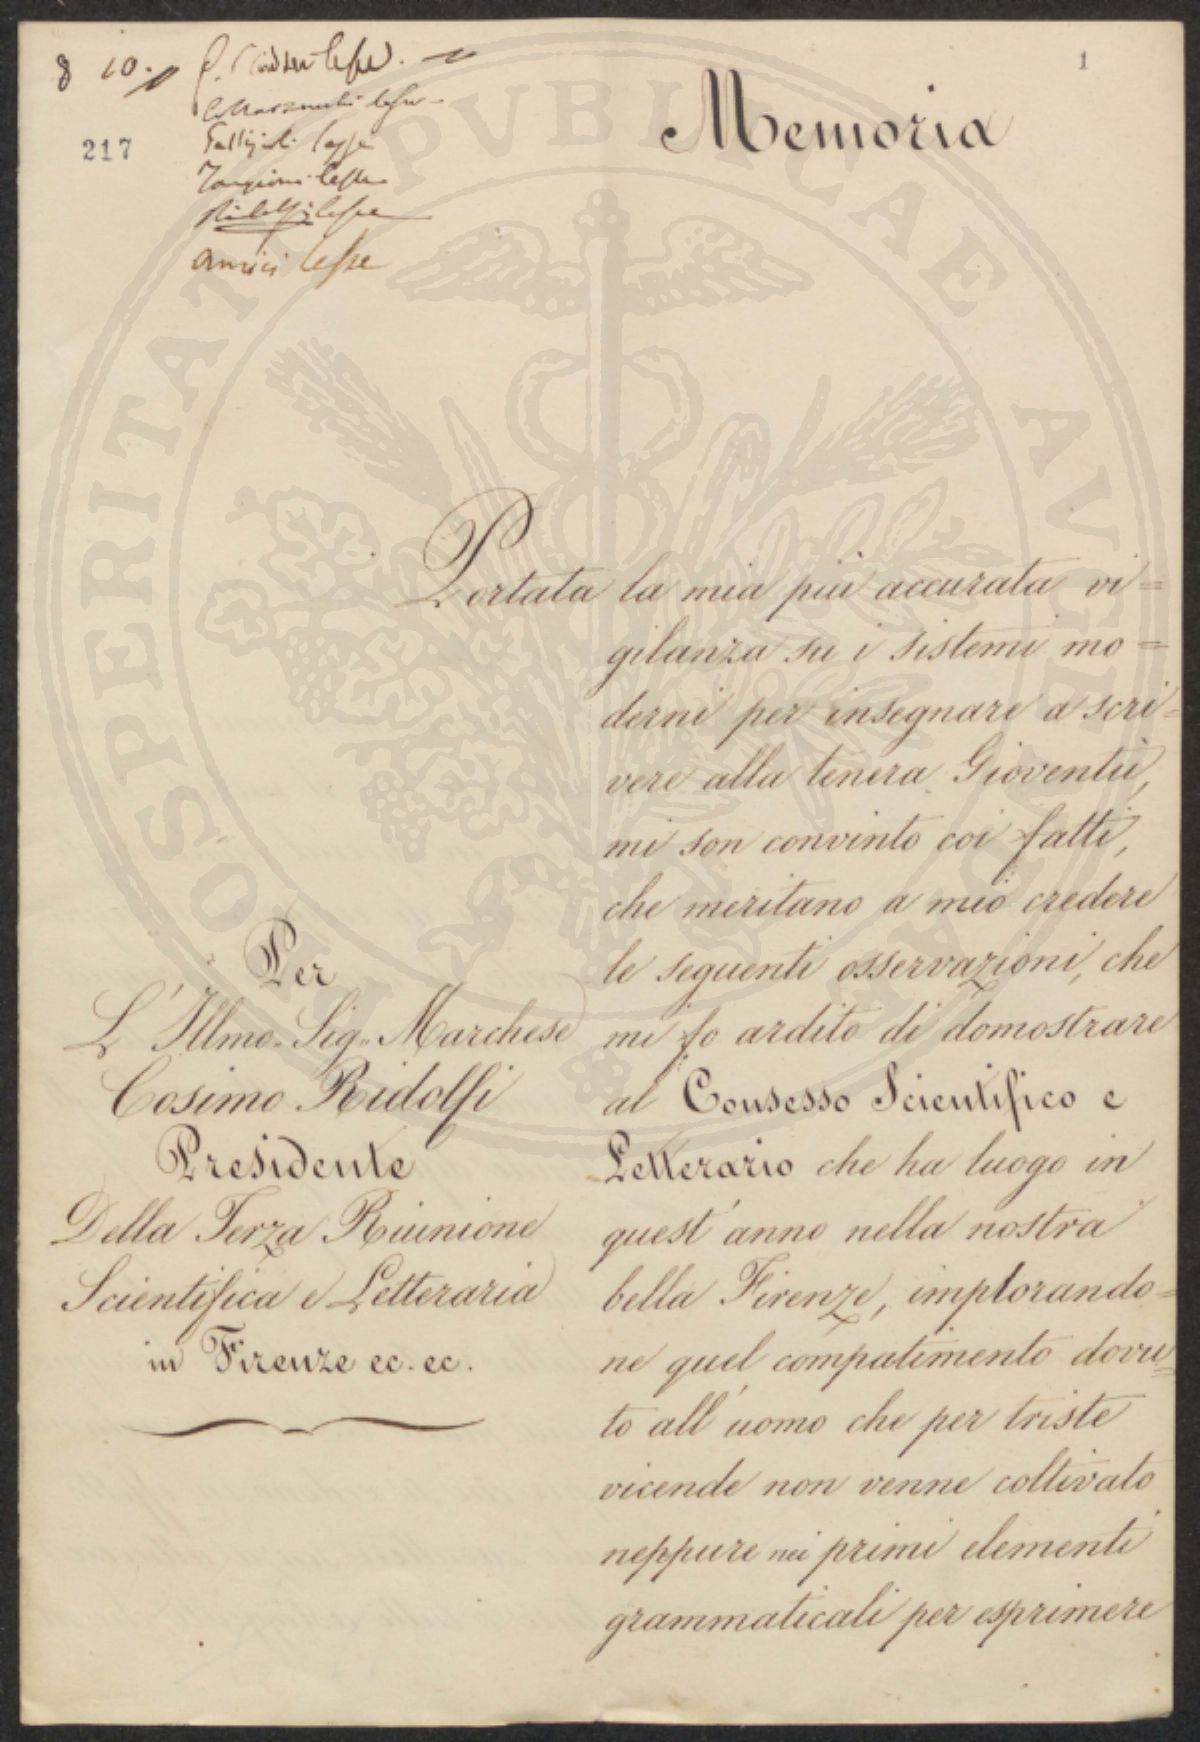 8 10.
217
lesse.
lesse
lesse
lesse
Ridolfi lesse
Amici lesse
1
Memoria
PROSPERITATI PUBLICAE AUGENDAE
Portata la mia più accurata vi=
gilanza su i sistemi mo=
derni per insegnare a scri=
vere alla tenera Gioventù,
mi son convinto coi fatti,
che meritano a mio credere
le seguenti osservazioni, che
mi fo ardito di domostrare
al Consesso Scientifico e
Letterario che ha luogo in
quest'anno nella nostra
bella Firenze, implorando=
ne quel compatimento dovu=
to all'uomo che per triste
vicende non venne coltivato
neppure nei primi elementi
grammaticali per esprimere
Per
L'Illmo. Sig. Marchese
Cosimo Ridolfi
Presidente
Della Terza Riunione
Scientifica e Letteraria
in Firenze ec. ec.